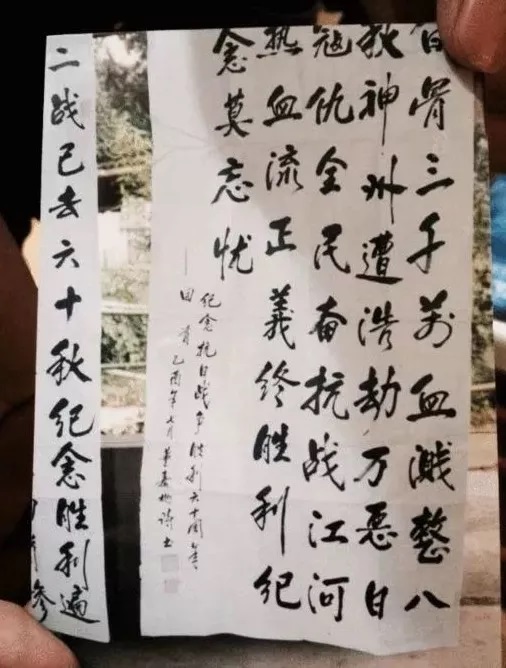 白骨三千萬血溅整八
秋神州遭浩劫万恶日
寇仇全民奋抗战江河
热血流正義终胜利纪
念莫忘忧
纪念抗日战争胜利六十周年
回首乙酉年七月
诗书
二战已去六十秋纪念胜利遍
参